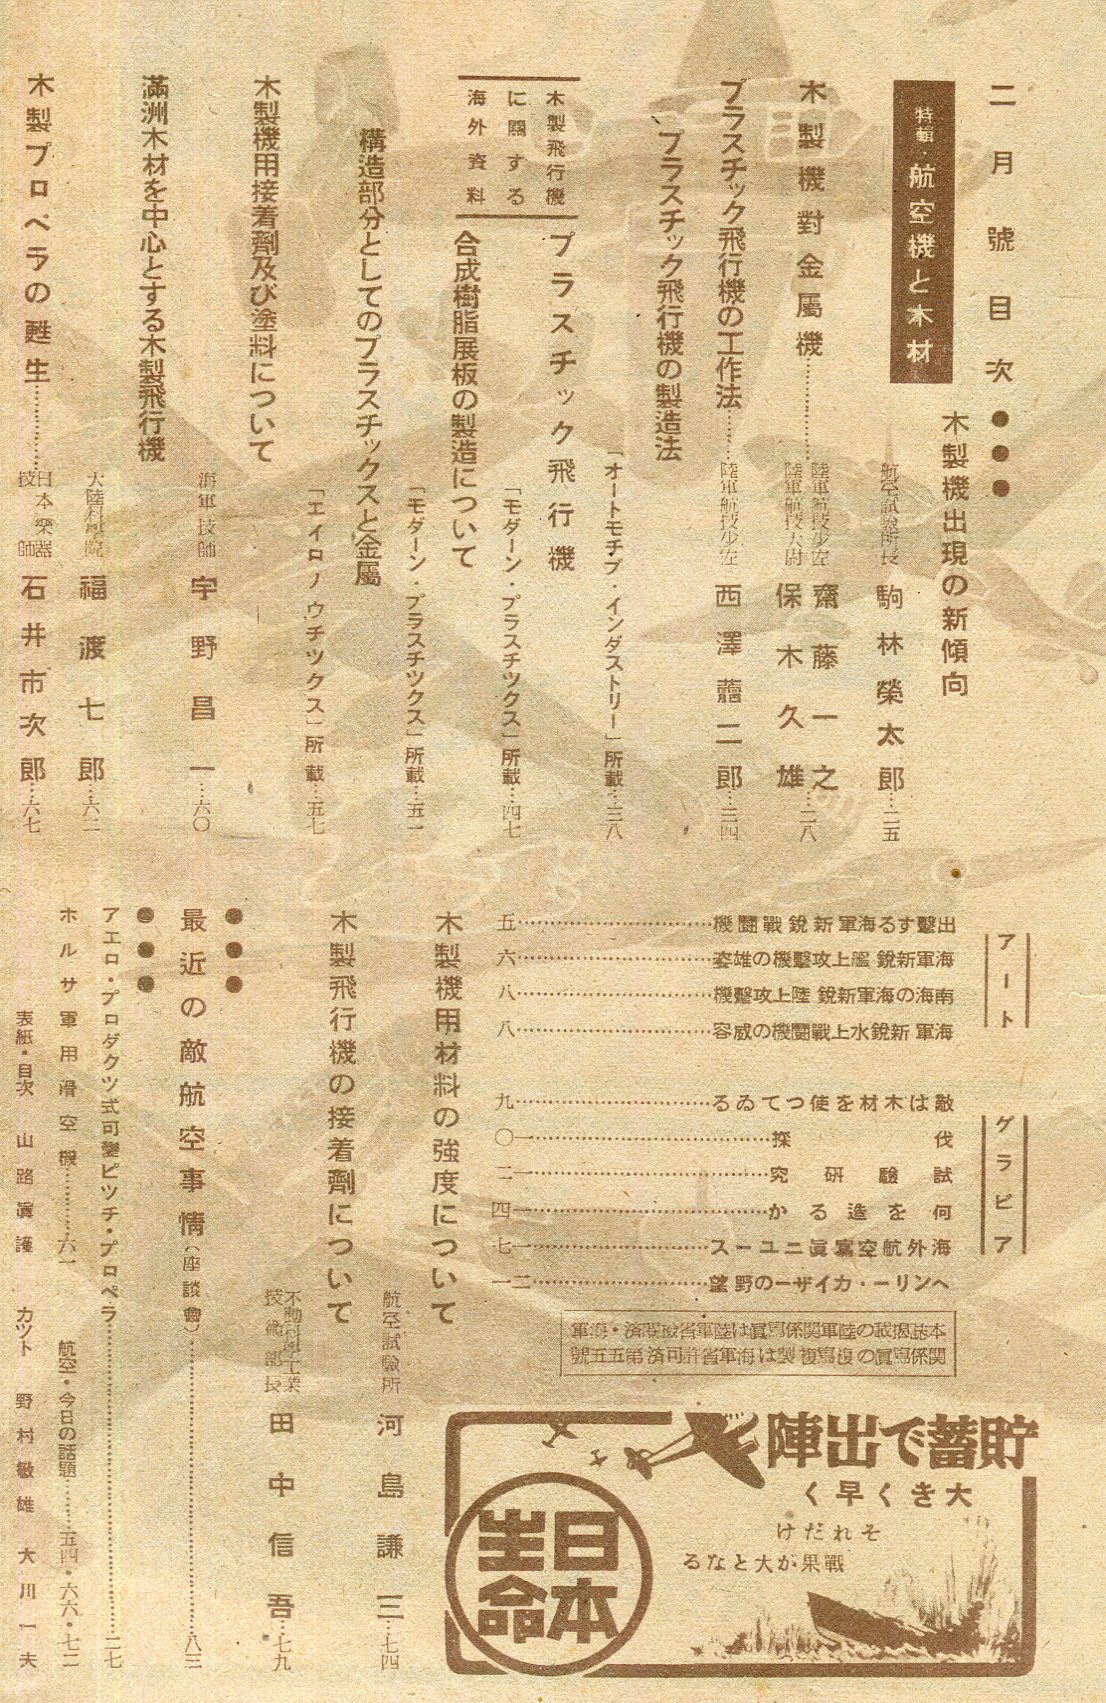 二月號目次●●●
特輯・航空機と木材
木製機出現の新傾向
航空試驗所長 駒林榮太郎…二五
木製機對金屬機…………
陸軍航技少佐 齋藤一之
陸軍航技大尉 保木久雄…二八
プラスチック飛行機の工作法……
陸軍航技少佐 西澤 二郎…三四
プラスチック飛行機の製造法
「オートモチブ・インダストリー」所載…三八
木製飛行機
に關する
海外資料
プラスチック飛行機
「モダーン・プラスチツクス」所載…四七
合成樹脂展板の製造について
「モダーン・プラスチツクス」所載…五一
構造部分としてのプラスチックスと金屬
「エイロノウチツクス」所載…五七
木製機用接着劑及び塗料について
海軍技師 宇野昌一…六〇
滿洲木材を中心とする木製飛行機
大陸科學院 福渡七郎…六二
木製プロペラの甦生…………
日本樂器
技師 石井市次郎…六七
アート
出擊する海軍新銳戰鬪機…………五
海軍新銳艦上攻擊機の雄姿…………六
南海の海軍新銳陸上攻擊機…………八
海軍新銳水上戰鬪機の威容…………八
グラビア
敵は木材を使つてゐる…………九
伐採…………一〇
試驗研究…………一二
何を造るか…………一四
海外航空寫眞ニユース…………一七
ヘンリー・カイザーの野望…………二一
本誌揭載の陸軍關係寫眞は陸軍省檢閱濟・海軍
關係寫眞の複寫複製は海軍省許可濟第五五號
貯蓄で出陣
大きく早く
それだけ
戰果が大となる
日本
生命
木製機用材料の強度について
航空試驗所 河島謙三…七四
木製飛行機の接着劑について
不動科學工業
技術部長 田中信吾…七九
●●●
最近の敵航空事情(座談會)…………八三
●●●
アエロ・プロダクツ式可變ピツチ・プロペラ…………二七
ホルサ軍用滑空機…………六一
航空・今日の話題…………五四・六六・七二
表紙・目次 山路眞護 カツト 野村敏雄 大川一夫